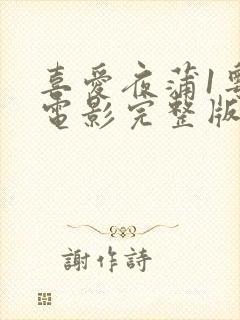 喜愛夜蒲1粵
電影完整版
謝作詩